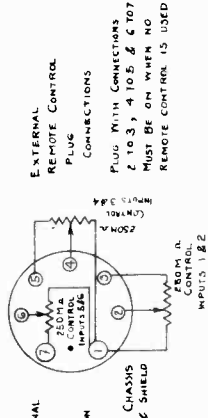 EXTERNAL
REMOTE CONTROL
PLUG
CONNECTIONS
PLUG WITH CONNECTIONS
2 TO 3, 4 TO 5 & 6 TO 7
MUST BE ON WHEN NO
REMOTE CONTROL IS USED
250MΩ
CONTROL
INPUTS 3 & 4
5
4
6
3
250MΩ
CONTROL
INPUTS 5&6
7
2
1
250MΩ
CONTROL
INPUTS 1 & 2
CHASSIS
& SHIELD